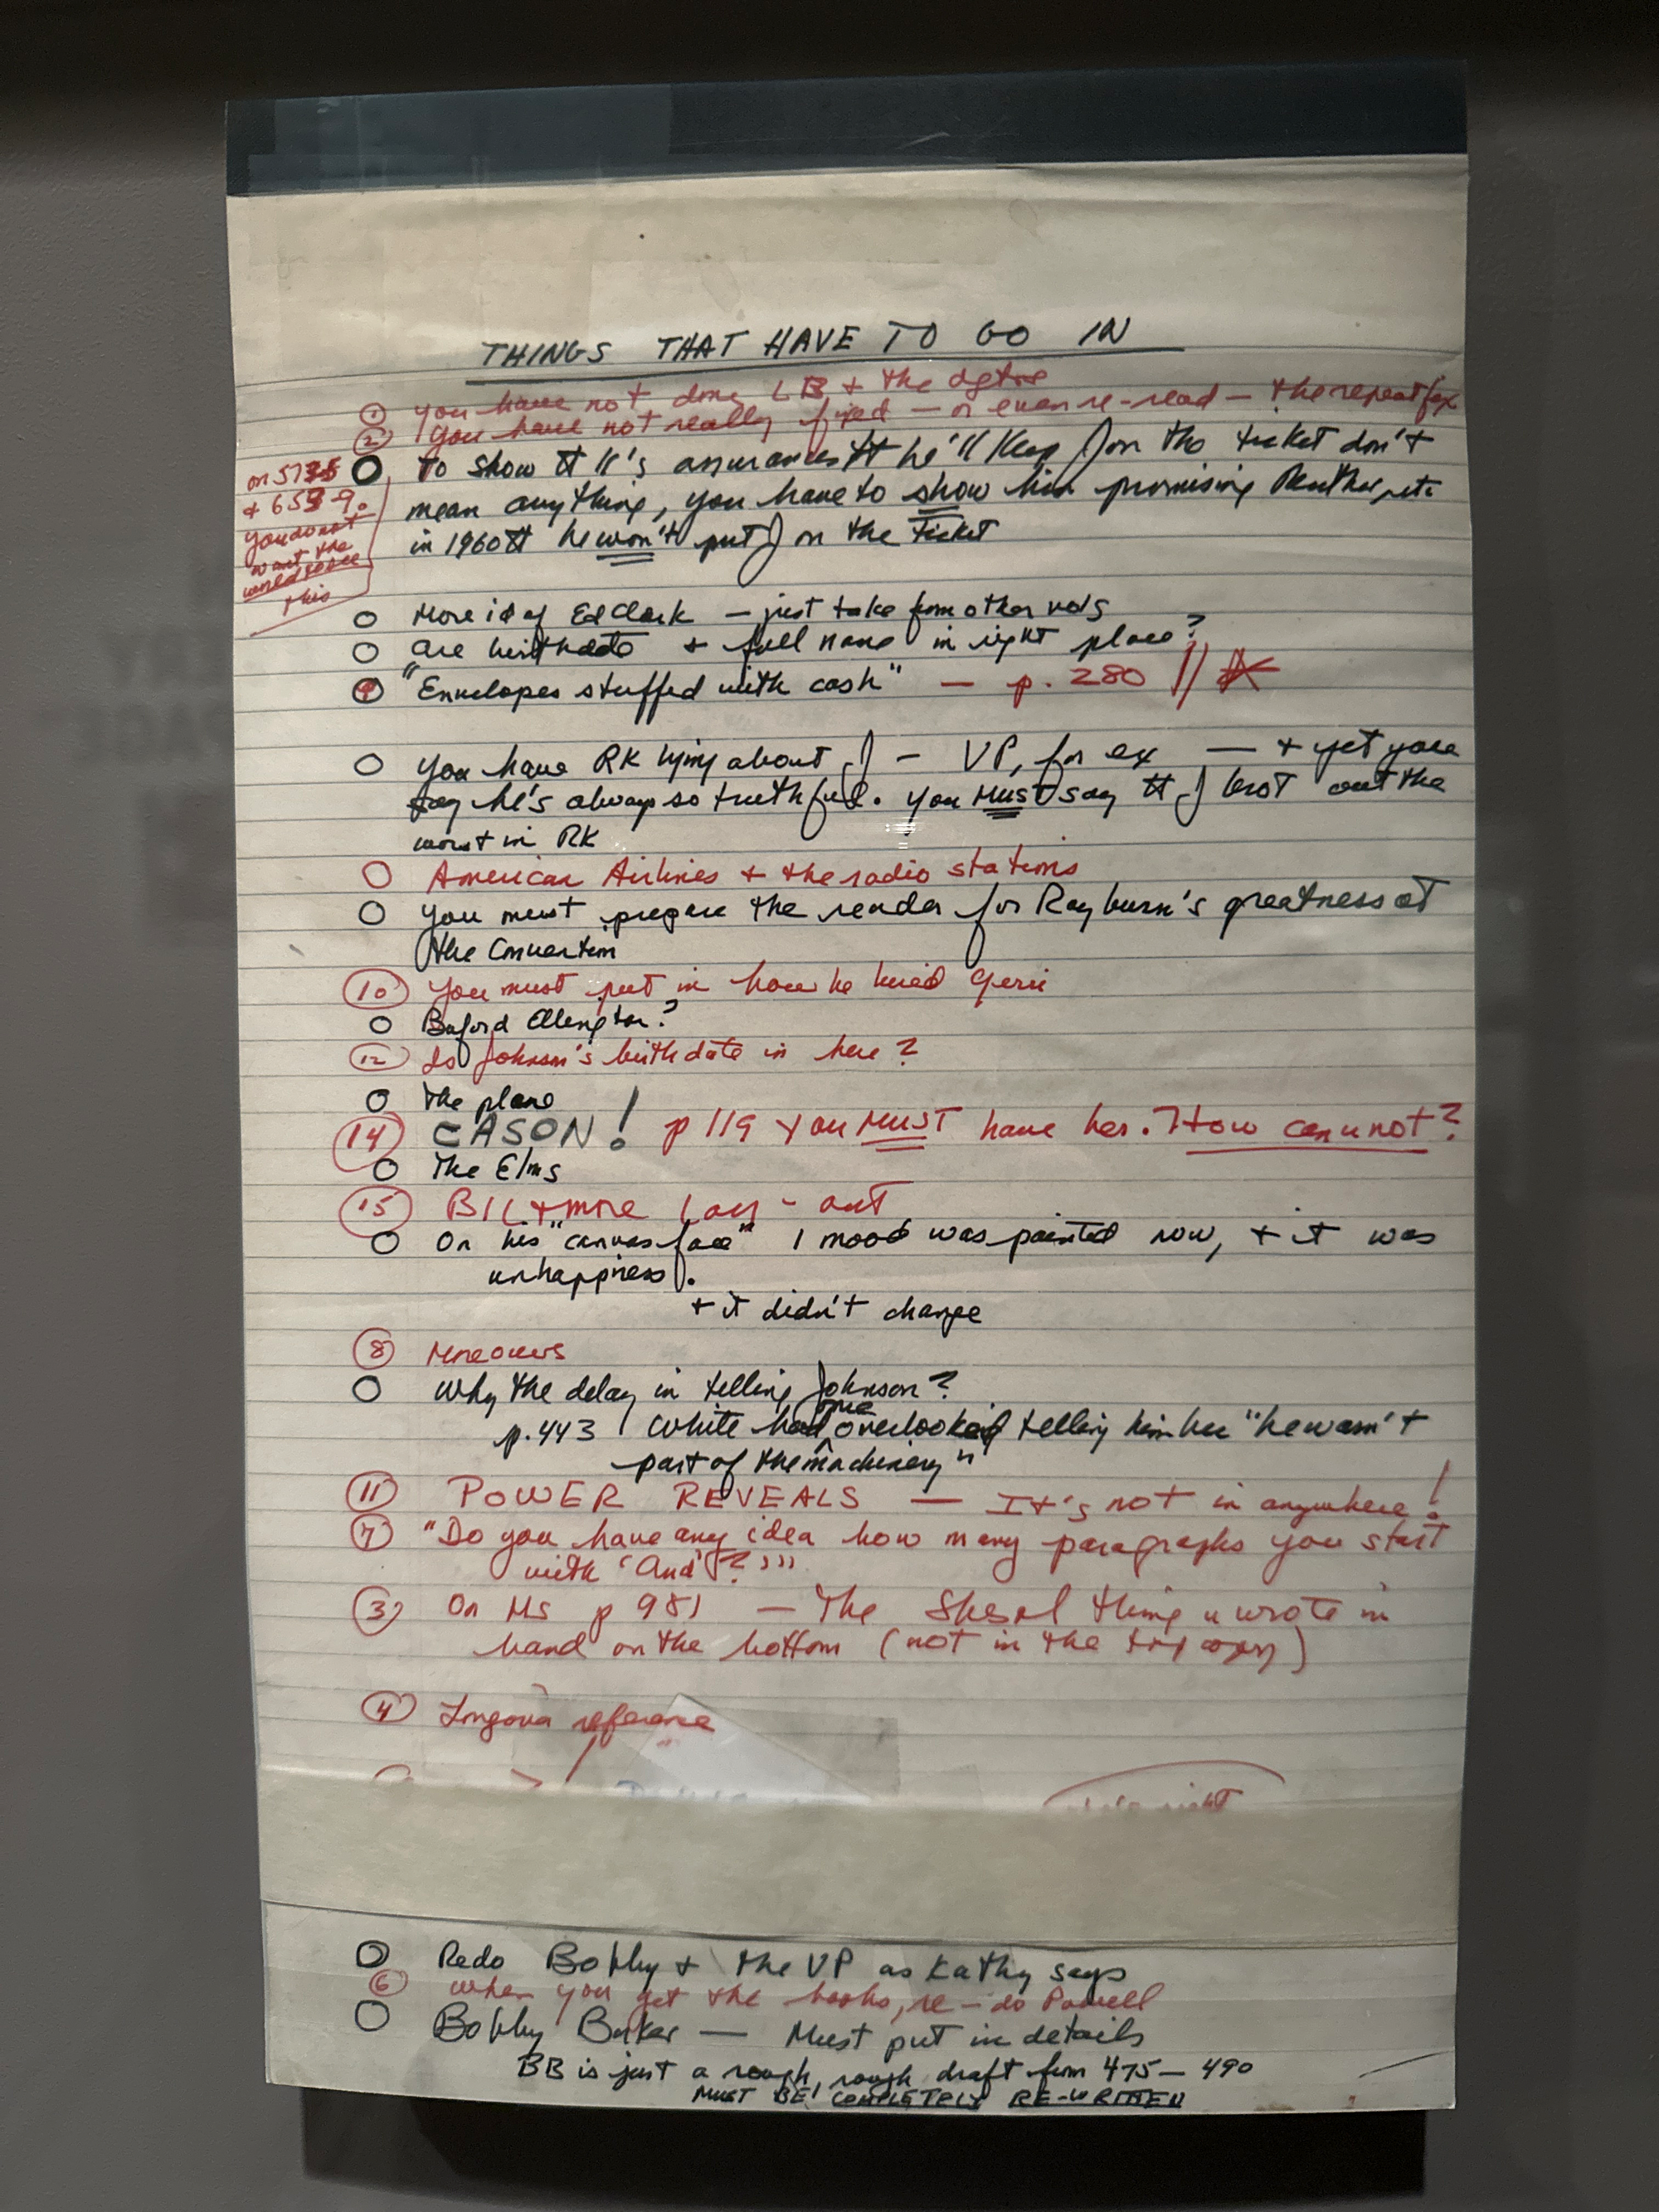 THINGS THAT HAVE TO GO IN
① You have not done LB + the
② You have not really fixed — or even re-read — the repeat fox
on 5735
+ 653-9.
you do not
want the
world to see
this
○ To show tt K's assurances tt he'll keep J on the ticket don't
mean anything, you have to show him promising Reuther, etc
in 1960 tt he won't put J on the ticket
○ More id of Ed Clark — just take from other vols
○ Are birthdate + full name in right place?
○ "Envelopes stuffed with cash" — p. 280 //
○ You have RK lying about J — VP, for ex — + yet you
say he's always so truthful. You MUST say tt J brot out the
worst in RK
○ American Airlines + the radio stations
○ You must prepare the reader for Rayburn's greatness at
the Convention
⑩ You must put in how he hired Geri
○ Buford Ellington?
⑫ Is Johnson's birthdate in here?
○ The plane
⑭ CASON! p 119 You MUST have her. How can u not?
○ The Elms
⑮ Biltmore lay-out
○ On his "canvas face" 1 mood was painted now, + it was
unhappiness.
+ it didn't change
⑧ Moreovers
○ Why the delay in telling Johnson?
p. 443 White had overlooked telling him bec "he wasn't
part of the machinery"
⑪ POWER REVEALS — It's not in anywhere!
⑦ "Do you have any idea how many paragraphs you start
with 'And'?"
③ On MS p 981 — The thing u wrote in
hand on the bottom (not in the top copy)
④ Longova reference
right
○ Redo Bobby + the VP as Kathy says
⑥ When you get the books, re-do Powell
○ Bobby Baker — Must put in details
BB is just a rough, rough draft from 475 — 490
MUST BE COMPLETELY RE-WRITTEN